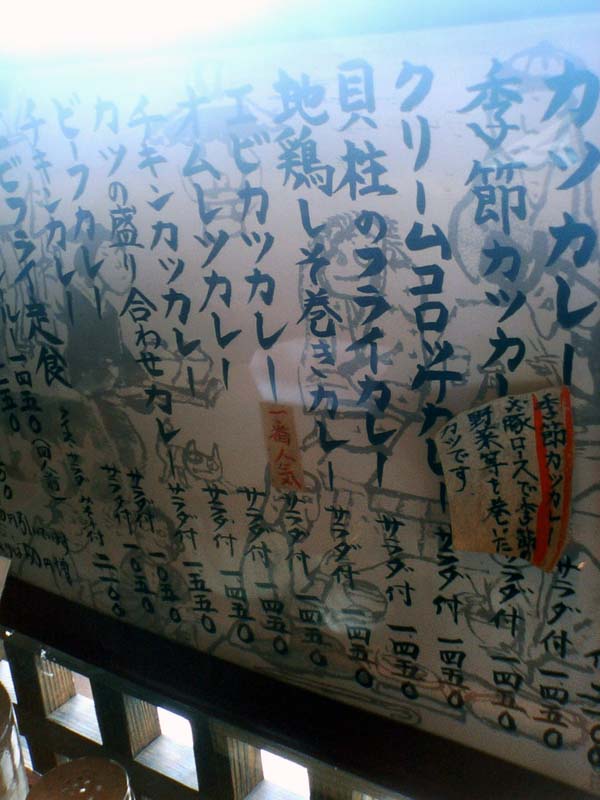 カツカレー サラダ付 一四五〇
季節カツカレー ラダ付 一四五〇
季節カツカレー
豚ロースで季節の
野菜等を巻いた
カツです
クリームコロッケカレー サラダ付 一四五〇
貝柱のフライカレー サラダ付 一四五〇
地鶏しそ巻きカレー サラダ付 一四五〇
エビカツカレー サラダ付 一五五〇
一番人気
オムレツカレー サラダ付 一四五〇
チキンカツカレー サラダ付 一四五〇
カツの盛り合わせカレー サラダ付 一五五〇
ビーフカレー サラダ付 一〇五〇
チキンカレー サラダ付 一〇五〇
ビフライ定食 ライス サラダ付 二一〇〇
一四五〇